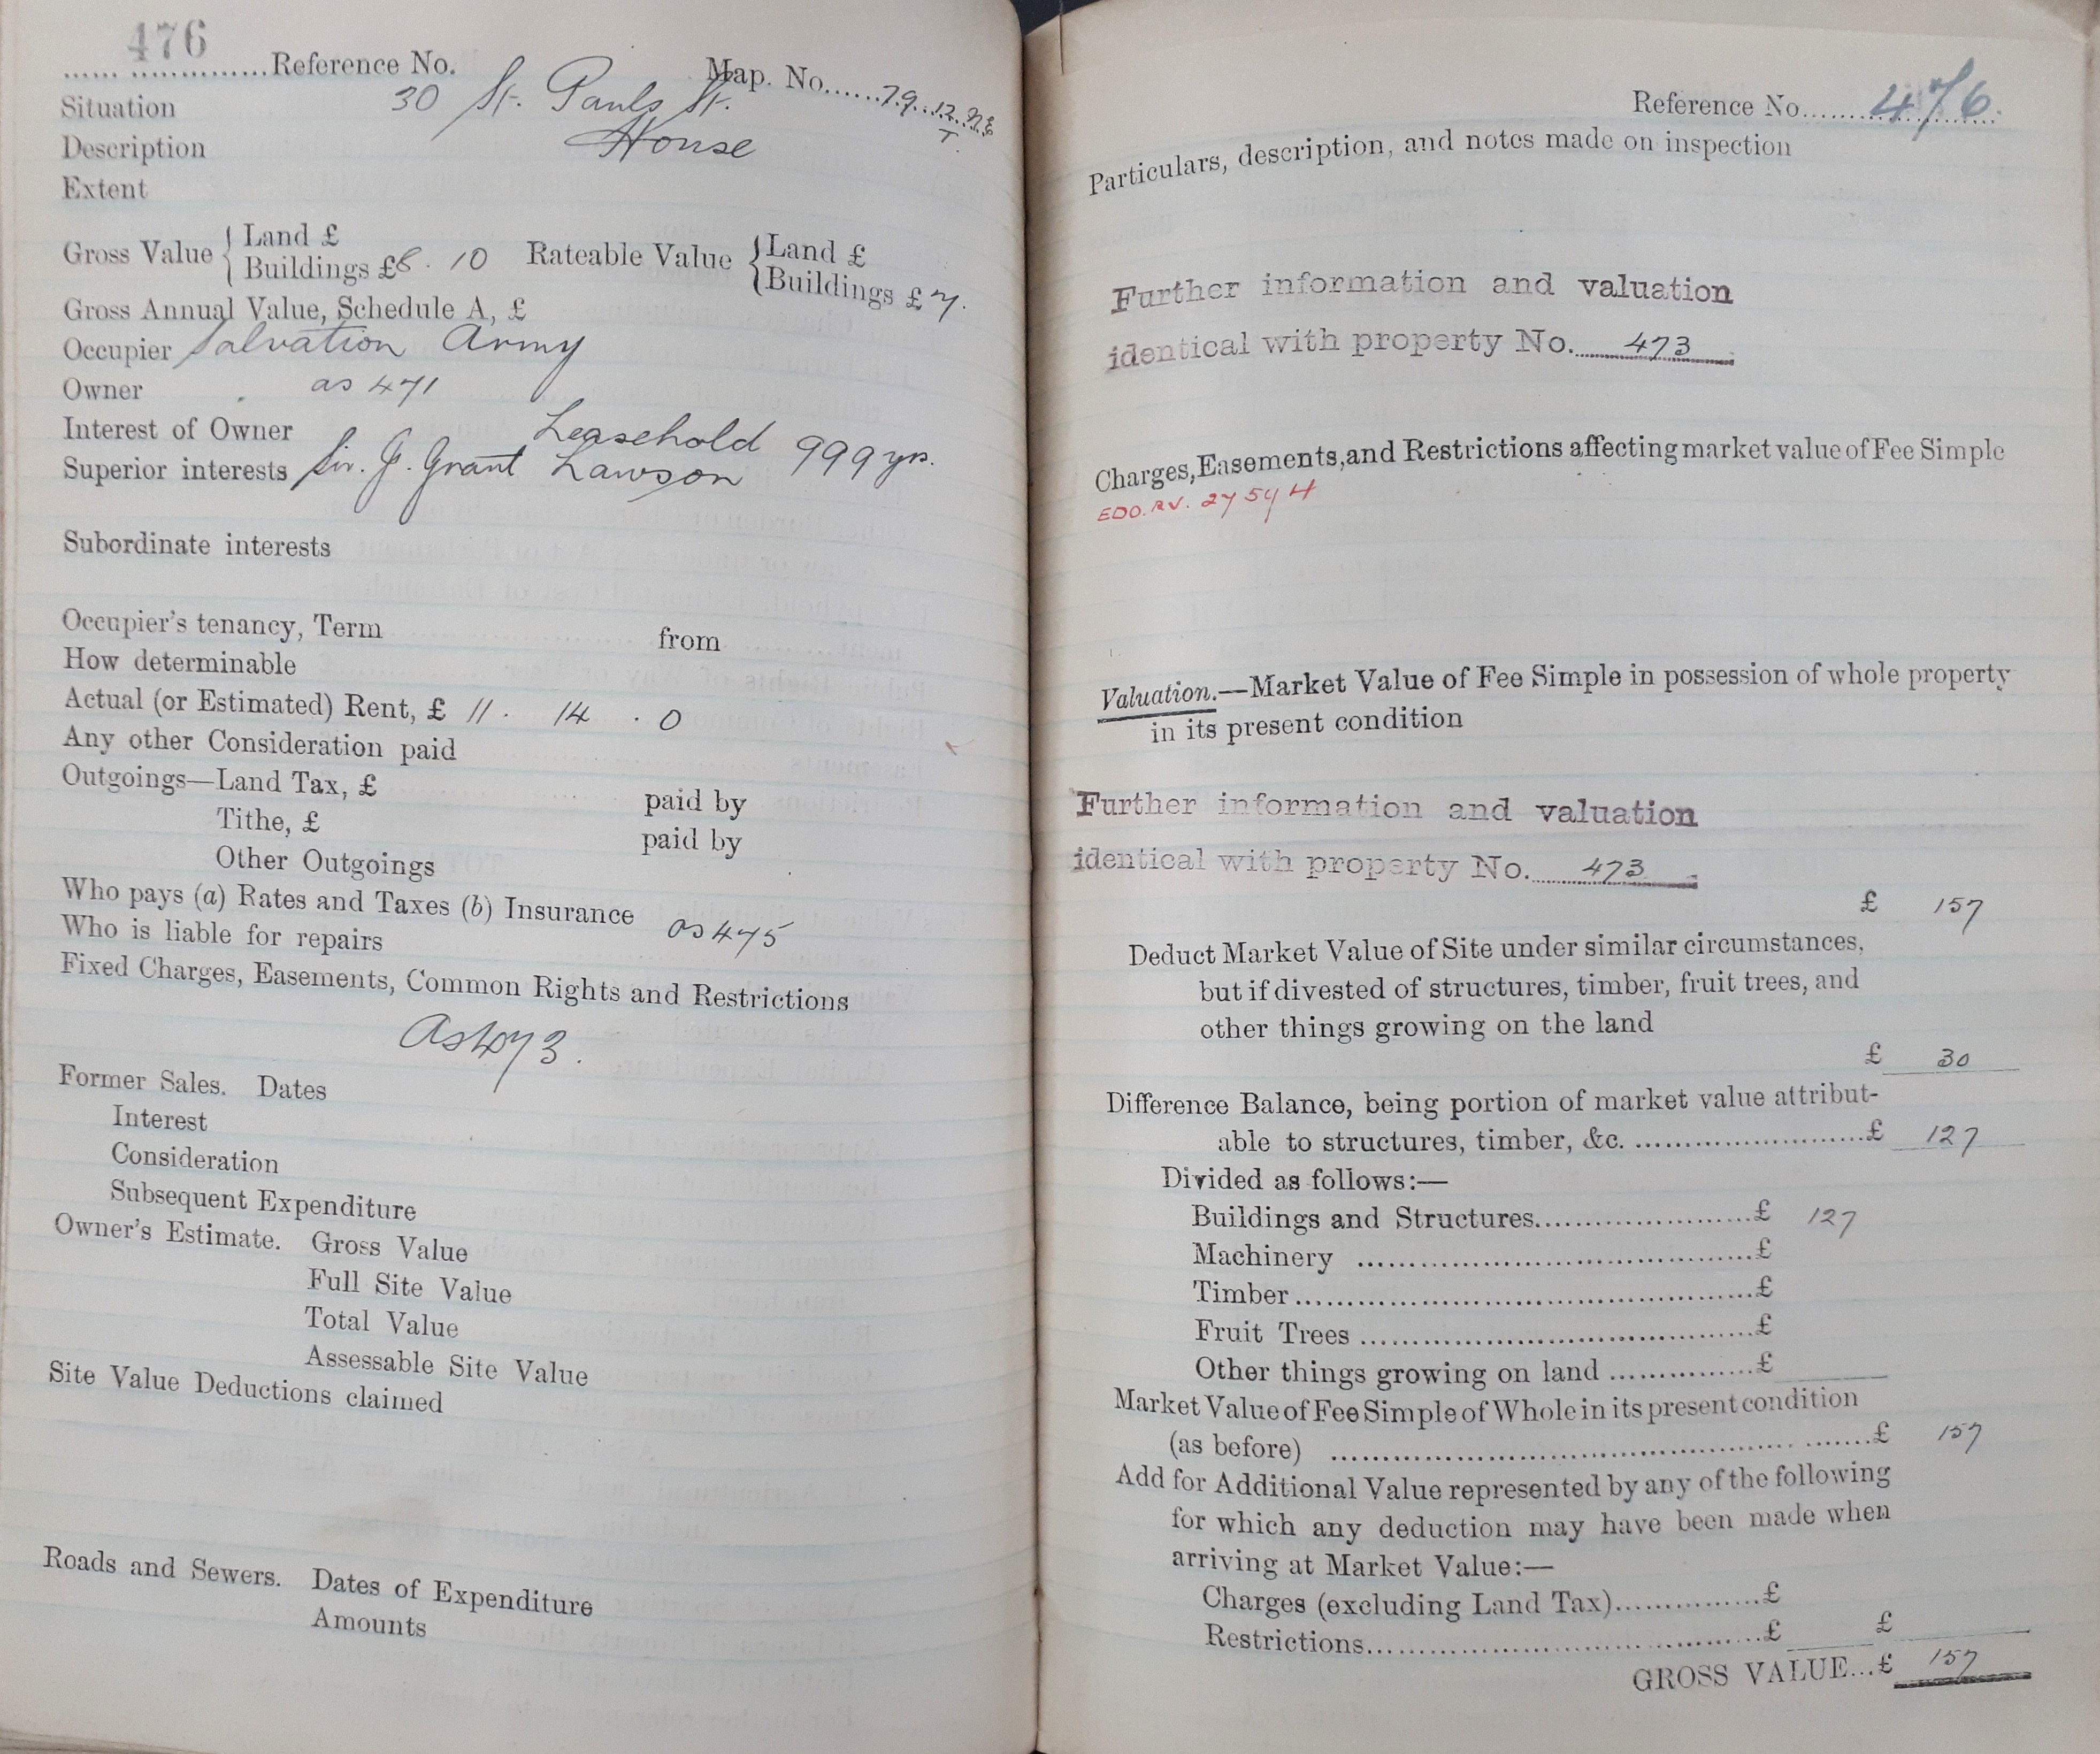 476
Reference No. Map. No. 79. 12. NE
T.
Situation 30 St. Pauls St.
Description House
Extent
Gross Value { Land £
Buildings £8. 10 Rateable Value { Land £
Buildings £ 7.
Gross Annual Value, Schedule A, £
Occupier Salvation Army
Owner as 471
Interest of Owner Leasehold 999 yrs.
Superior interests Sir. J. Grant Lawson
Subordinate interests
Occupier's tenancy, Term from
How determinable
Actual (or Estimated) Rent, £ 11. 14. 0
Any other Consideration paid
Outgoings—Land Tax, £ paid by
Tithe, £ paid by
Other Outgoings
Who pays (a) Rates and Taxes (b) Insurance as 475
Who is liable for repairs
Fixed Charges, Easements, Common Rights and Restrictions
As 473.
Former Sales. Dates
Interest
Consideration
Subsequent Expenditure
Owner's Estimate. Gross Value
Full Site Value
Total Value
Assessable Site Value
Site Value Deductions claimed
Roads and Sewers. Dates of Expenditure
Amounts
Reference No. 476.
Particulars, description, and notes made on inspection
Further information and valuation
identical with property No. 473.
Charges, Easements, and Restrictions affecting market value of Fee Simple
EDO. RV. 27574
Valuation.—Market Value of Fee Simple in possession of whole property
in its present condition
Further information and valuation
identical with property No. 473.
£ 157
Deduct Market Value of Site under similar circumstances,
but if divested of structures, timber, fruit trees, and
other things growing on the land
£ 30
Difference Balance, being portion of market value attribut-
able to structures, timber, &c. £ 127
Divided as follows:—
Buildings and Structures £ 127
Machinery £
Timber £
Fruit Trees £
Other things growing on land £
Market Value of Fee Simple of Whole in its present condition
(as before) £ 157
Add for Additional Value represented by any of the following
for which any deduction may have been made when
arriving at Market Value:—
Charges (excluding Land Tax) £
Restrictions £ £
GROSS VALUE...£ 157